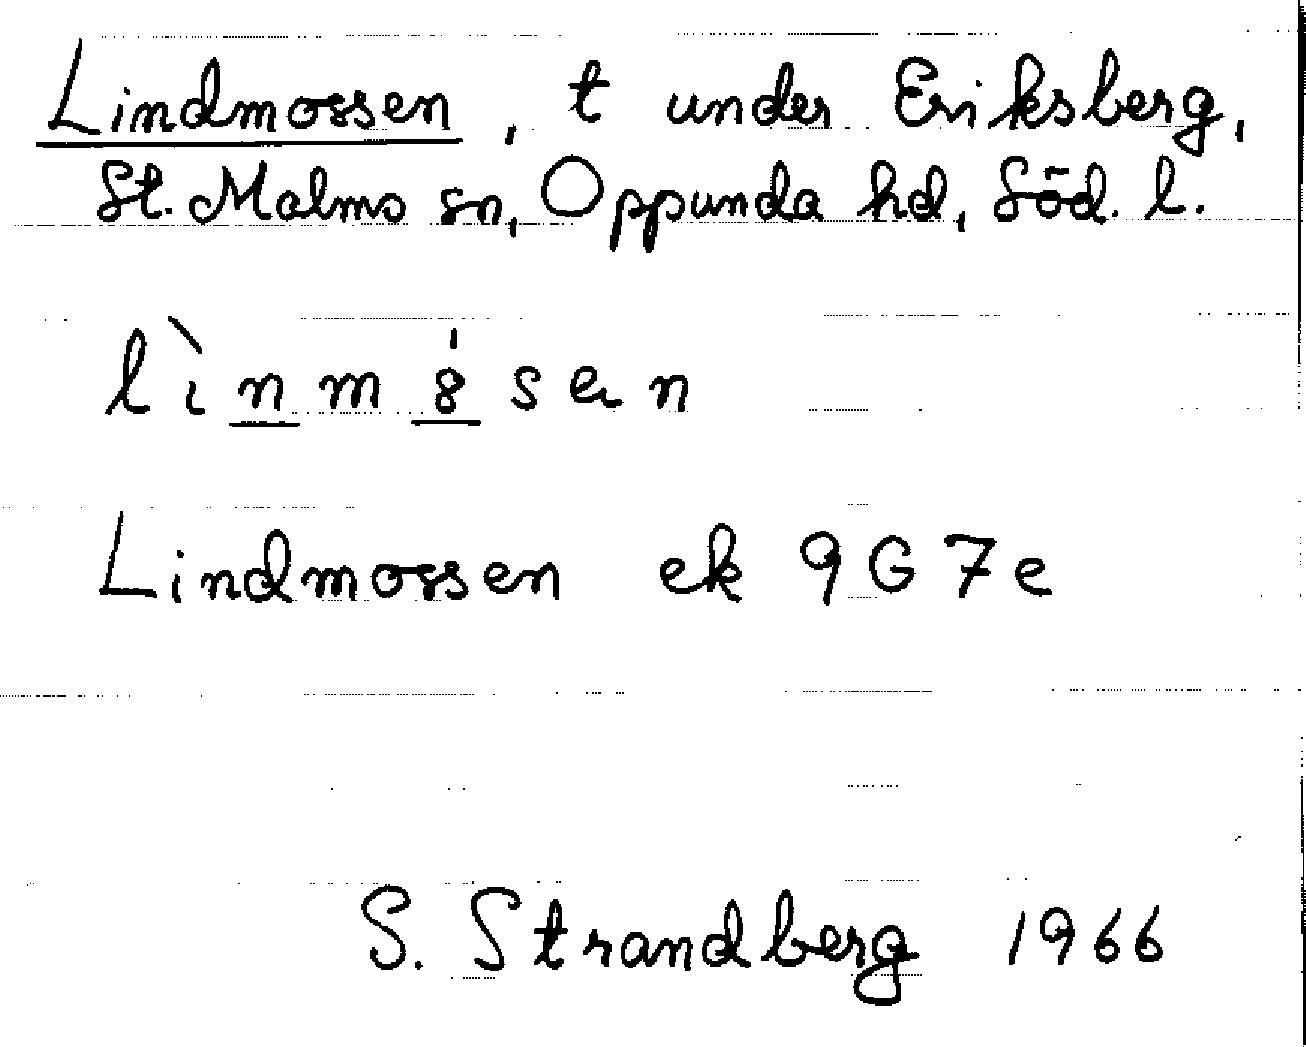 Lindmossen, t under Eriksberg,
St. Malms sn, Oppunda hd, Söd. l.
lìnm8̍sen
Lindmossen ek 9G7e
S. Strandberg 1966